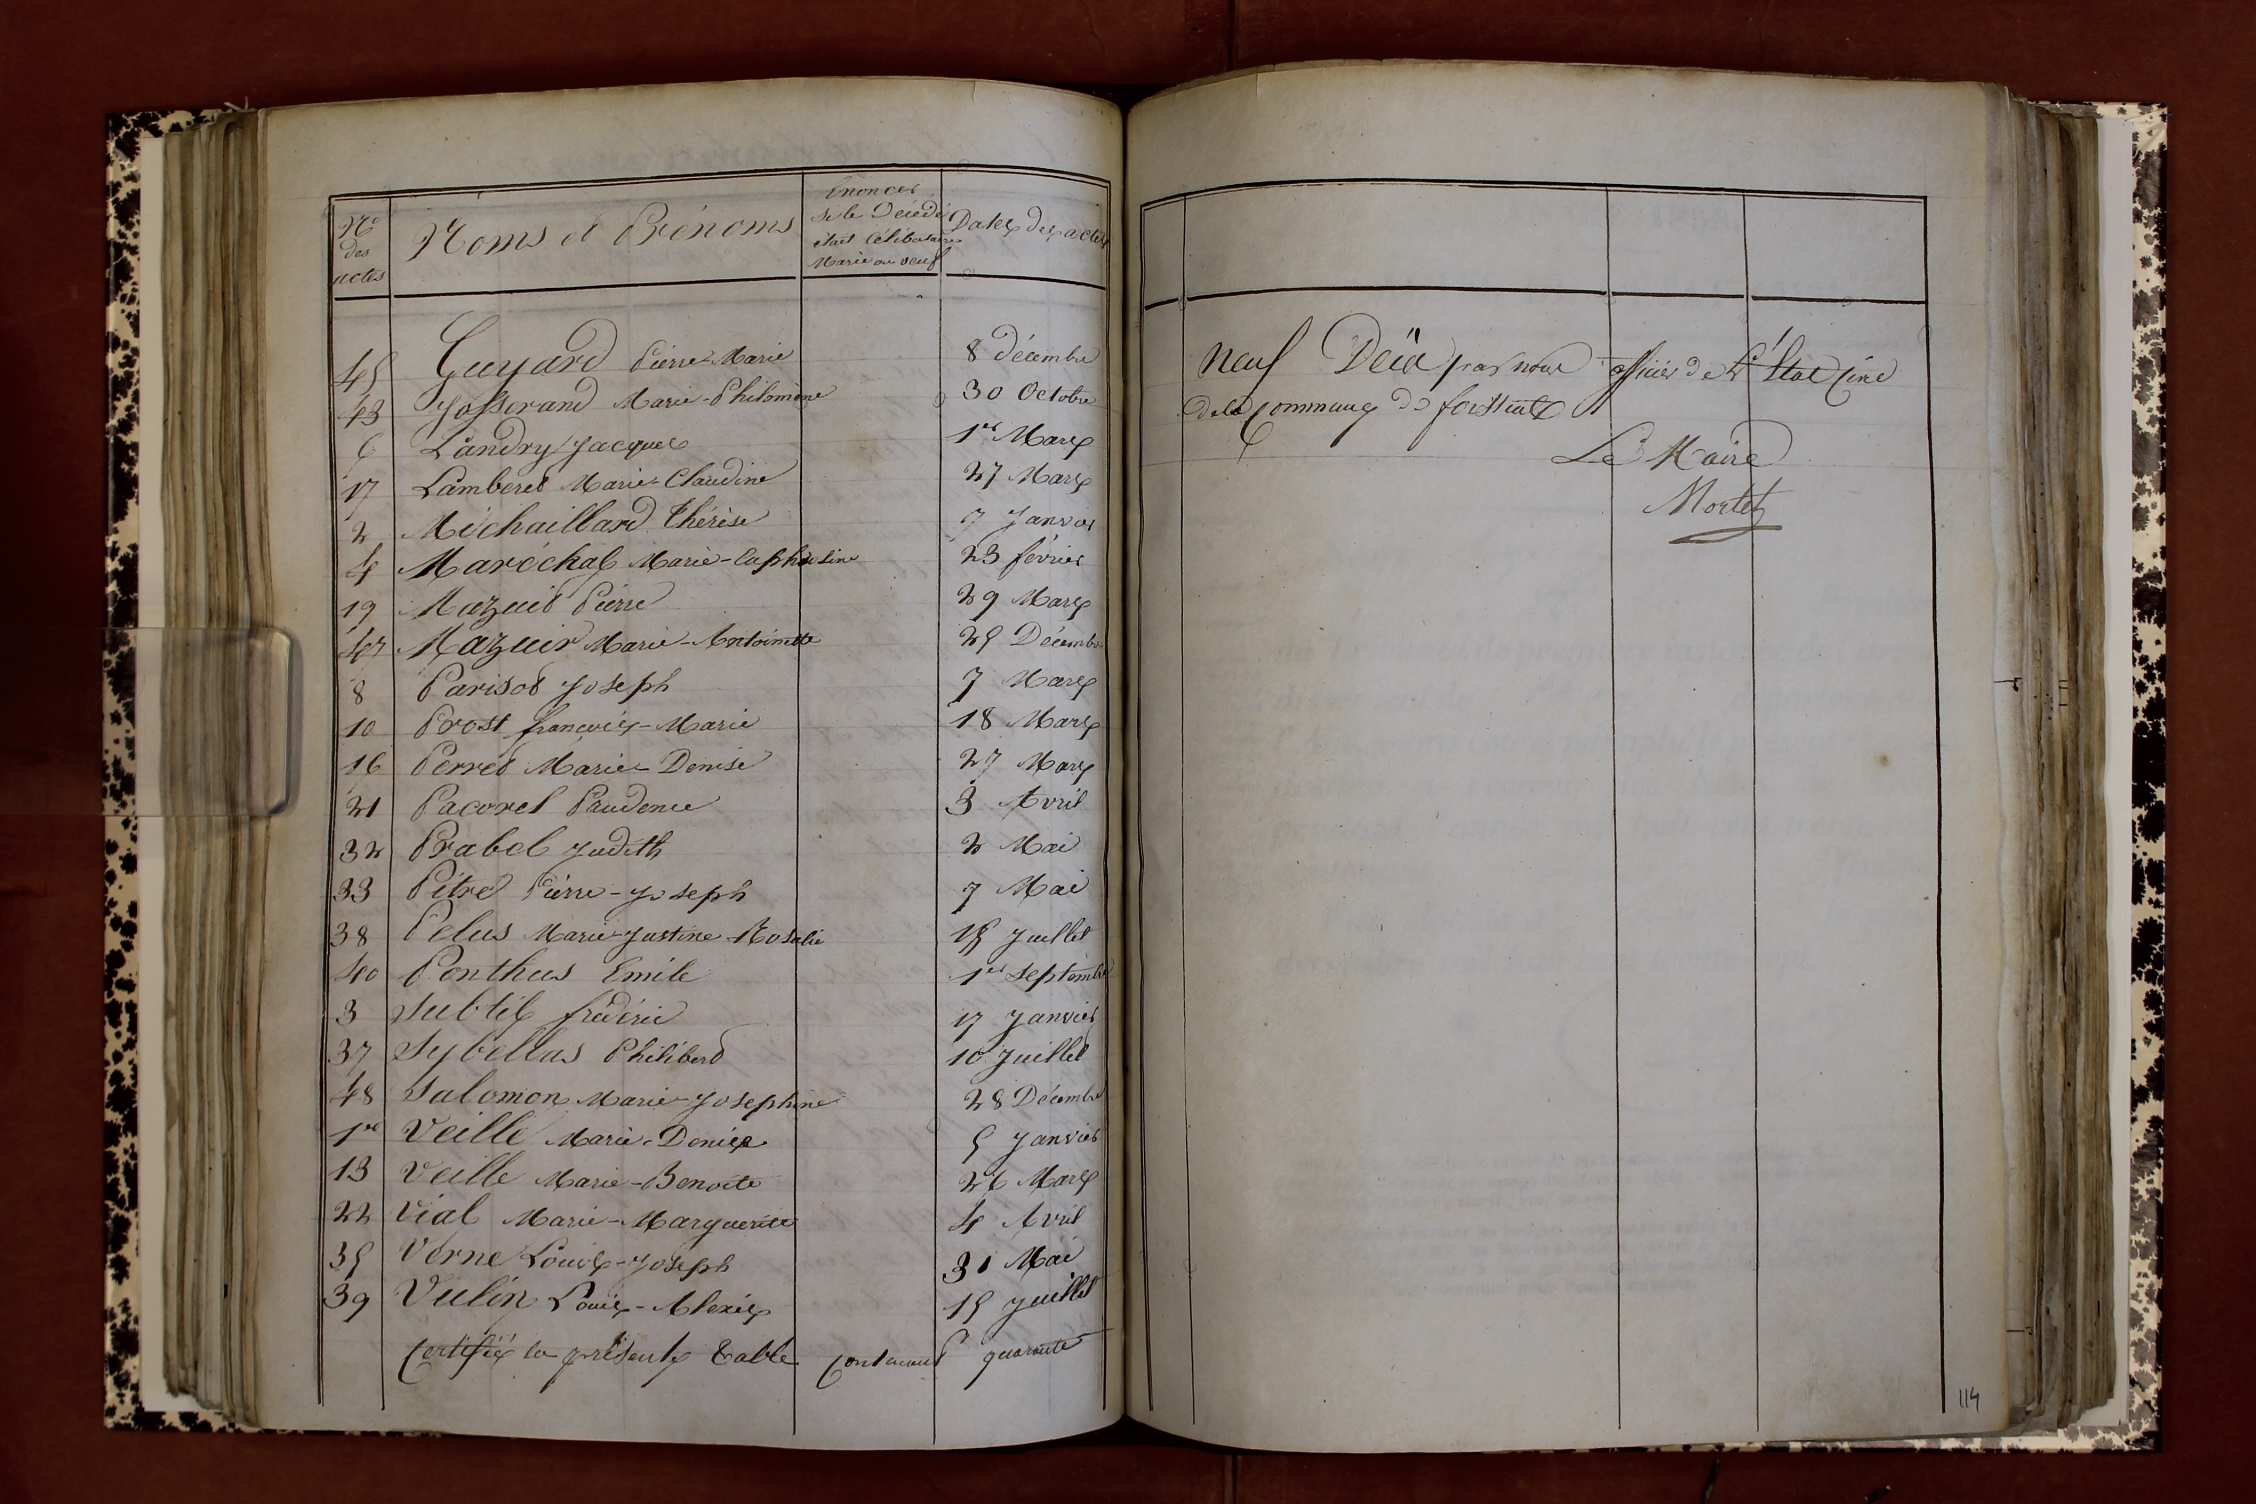 Nos des actes
Noms et Prénoms
énoncer si le Décédé était Célibataire Marié ou veuf
Dates des actes
45 Guyard Pierre-Marie 8 décembre
43 Josserand Marie-Philomène 30 Octobre
6 Landry Jacques 1er Mars
17 Lamberet Marie-Claudine 27 Mars
2 Michaillard Thérèse 7 Janvier
4 Maréchal Marie- 23 février
19 Mazuir Pierre 29 Mars
47 Mazuir Marie-Antoinette 25 Décembre
8 Parisot Joseph 7 Mars
10 Prost françois-Marie 18 Mars
16 Perret Marie-Denise 27 Mars
21 Pacoret Prudence 3 Avril
32 Prabel Judith 2 Mai
33 Pitre Pierre-Joseph 7 Mai
38 Pelus Marie-Justine-Rosalie 15 Juillet
40 Ponthus Emile 1er Septembre
3 Subtil frédéric 17 Janvier
37 Sybellas Philibert 10 Juillet
48 Salomon Marie-Josephine 28 Décembre
1re Veille Marie-Denise 5 Janvier
13 Veille Marie-Benoite 26 Mars
22 Vial Marie-Marguerite 4 Avril
35 Verne Louis-Joseph 31 Mai
39 Vulin Louis-Alexis 15 Juillet
Certifiée la présente Table Contenant quarante
neuf Décès par nous officier de l'État Civil
de la Commune de
Le Maire
Mortet
114